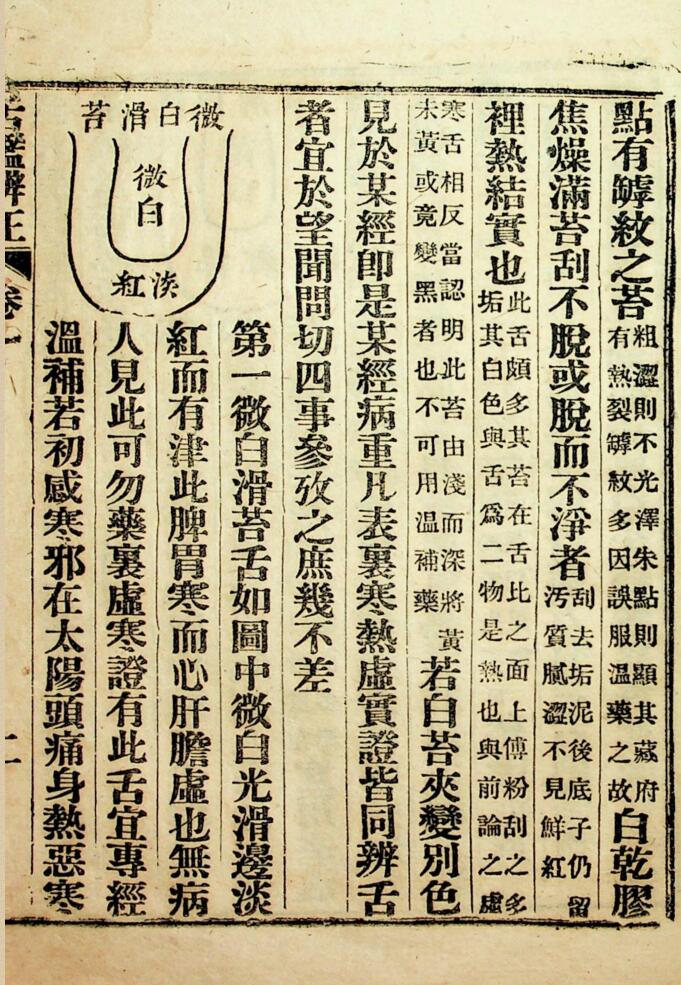 點有罅紋之苔粗澀則不光澤朱點則顯其藏府有熱裂罅紋多因誤服温藥之故白乾膠
焦燥滿苔刮不脫或脫而不淨者刮去垢泥後底子仍留汚質膩澀不見鮮紅
裡熱結實也此舌頗多其苔在舌比之面上傅粉刮之多垢其白色與舌爲二物是熱也與前論之虛
寒舌相反當認明此苔由淺而深將黃未黃或竟變黑者也不可用温補藥若白苔夾變別色
見於某經卽是某經病重凡表裏寒熱虛實證皆同辨舌
者宜於望聞問切四事參攷之庶幾不差
微白滑苔
微白
淡紅
第一微白滑苔舌如圖中微白光滑邊淡
紅而有津此脾胃寒而心肝膽虛也無病
人見此可勿藥裏虛寒證有此舌宜專經
溫補若初感寒邪在太陽頭痛身熱惡寒
舌鑑辨正
卷一
二